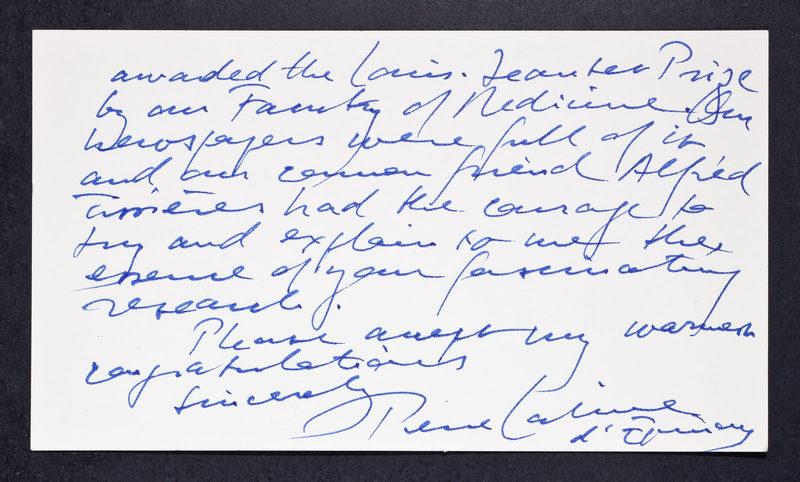 awarded the Louis. Jeantet Prize
by our Faculty of Medicine. Our
newspapers were full of it
and our common friend Alfred
Tissières had the courage to
try and explain to me the
essence of your fascinating
research.
Please accept my warmest
congratulations
Sincerely
d'Epinay